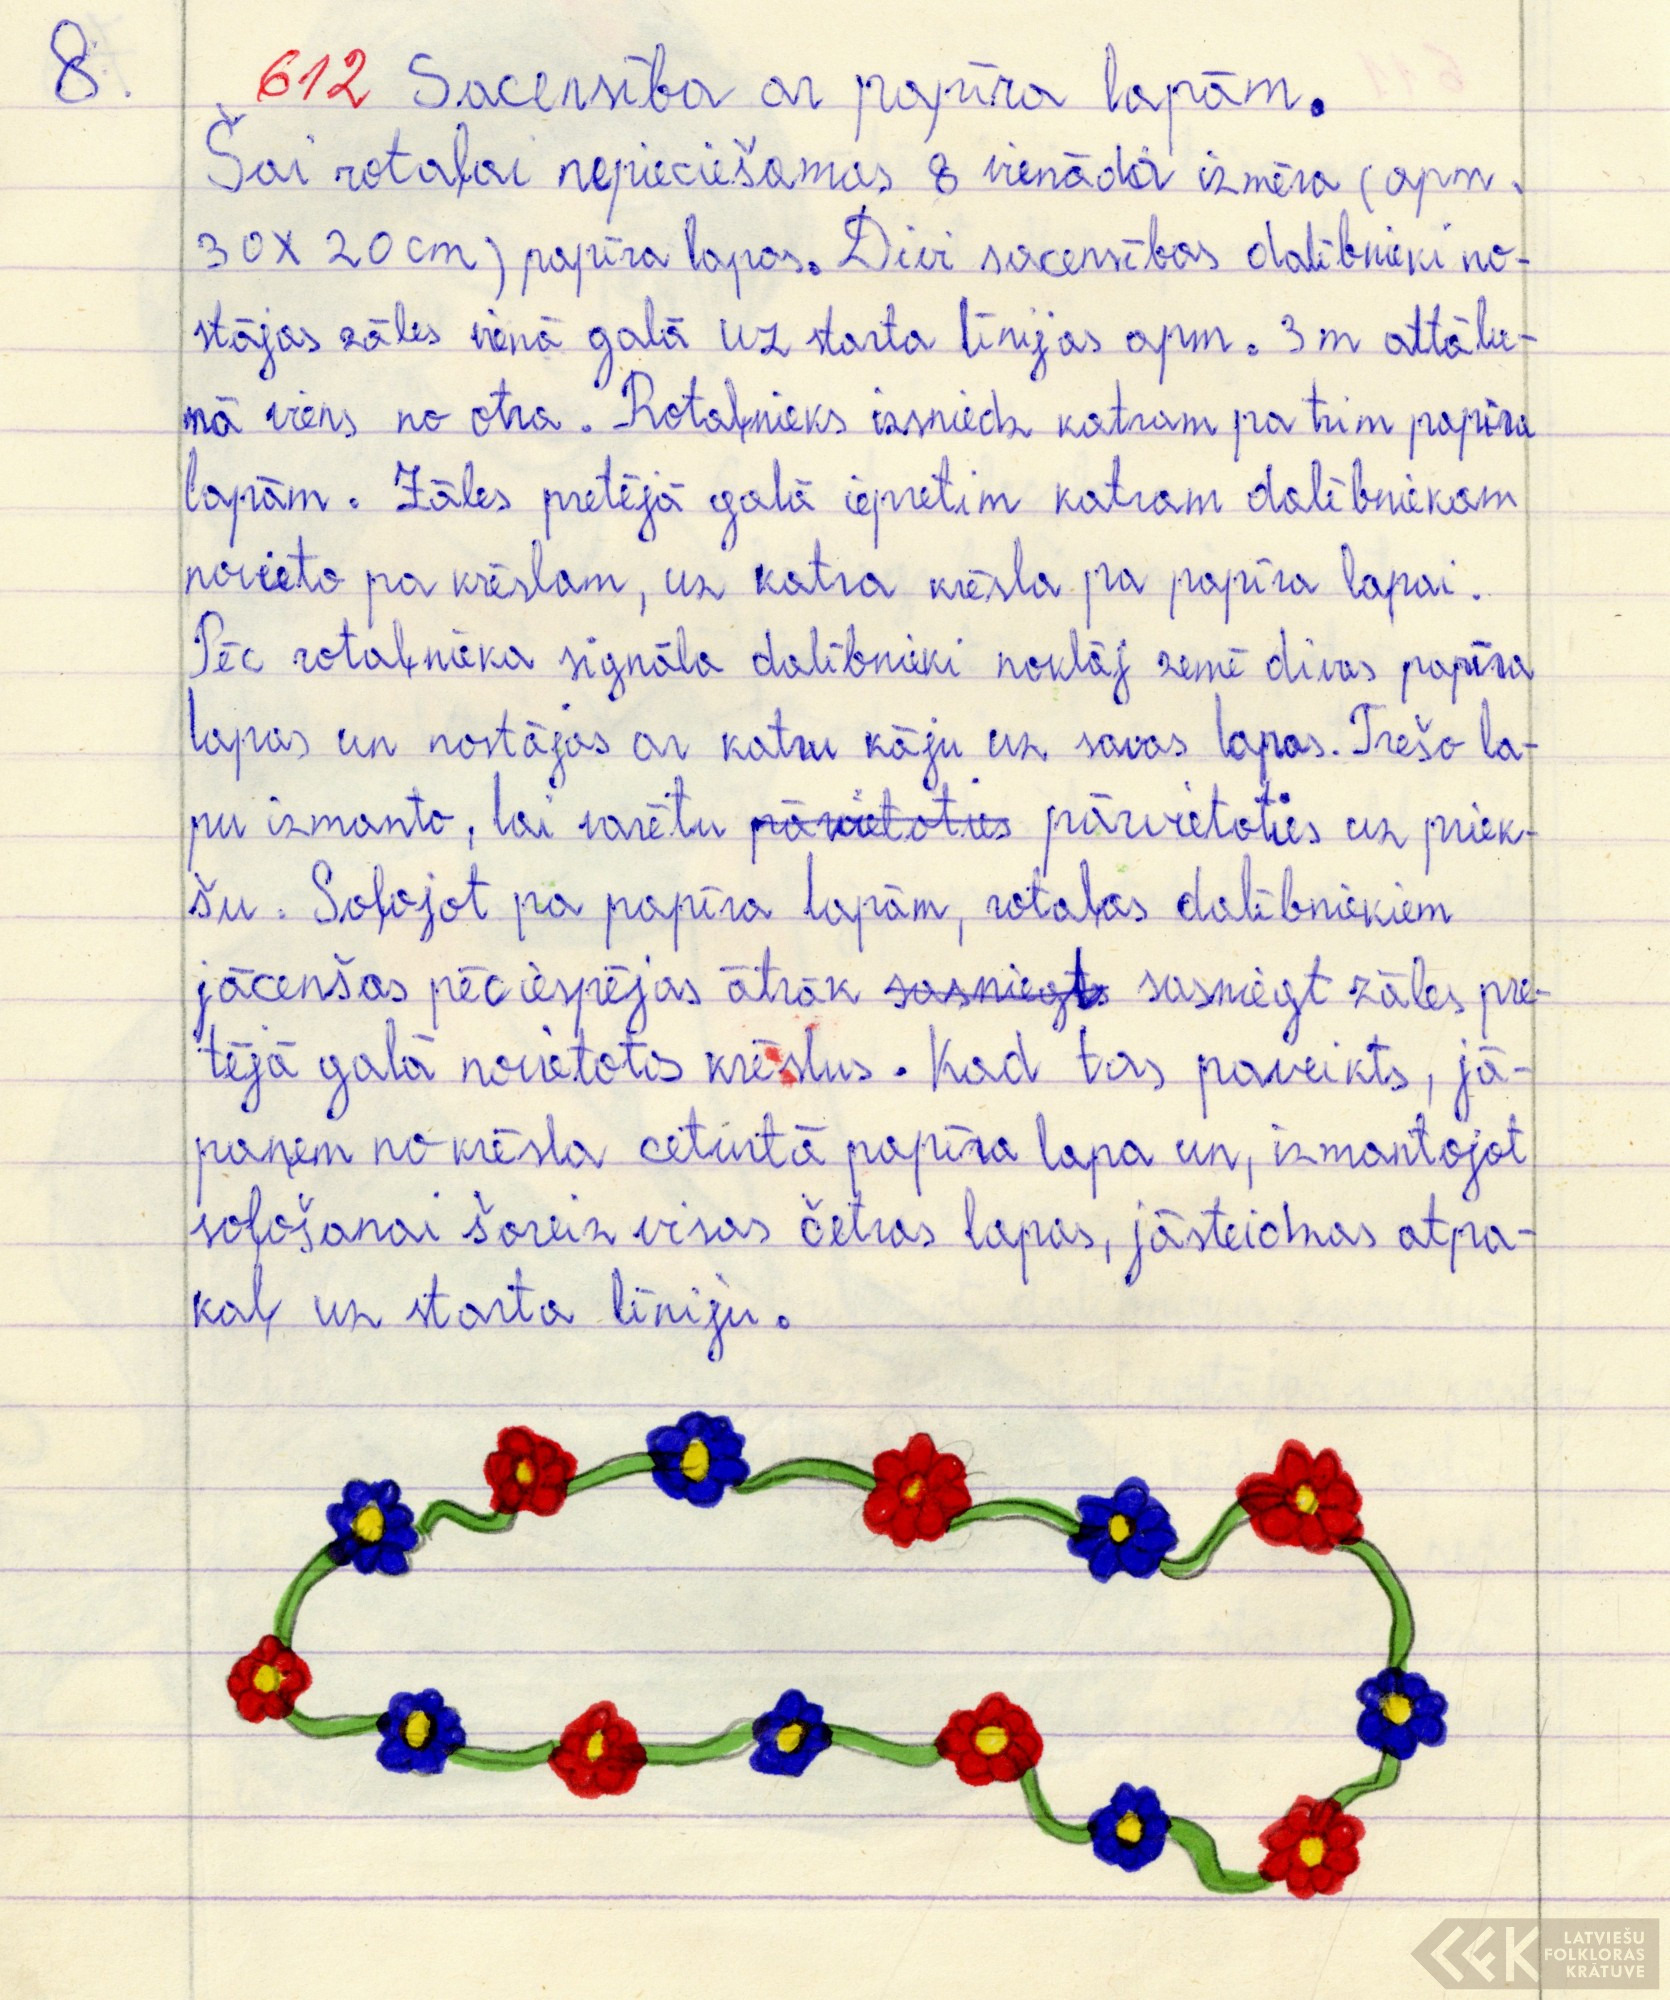 8.
612 Sacensība ar papīra lapām.
Šai rotaļai nepieciešamas 8 vienāda izmēra (apm.
30X20cm) papīra lapas. Divi sacensības dalībnieki no-
stājas zāles vienā galā uz starta līnijas apm. 3m attālu-
mā viens no otra. Rotaļnieks izsniedz katram pa trim papīra
lapām. Zāles pretējā galā iepretim katram dalībniekam
novieto pa krēslam, uz katra krēsla pa papīra lapai.
Pēc rotaļnieka signāla dalībnieki noklāj zemē divas papīra
lapas un nostājas ar katru kāju uz savas lapas. Trešo la-
pu izmanto, lai varētu pārvietoties pārvietoties uz priek-
šu. Soļojot pa papīra lapām, rotaļas dalībniekiem
jācenšas pēciespējas ātrāk sasniegts sasniegt zāles pre-
tējā galā novietotos krēslus. Kad tas paveikts, jā-
paņem no krēsla ceturtā papīra lapa un, izmantojot
soļošanai šoreiz visas četras lapas, jāsteidzas atpa-
kaļ uz starta līniju.
LATVIEŠU
FOLKLORAS
KRĀTUVE